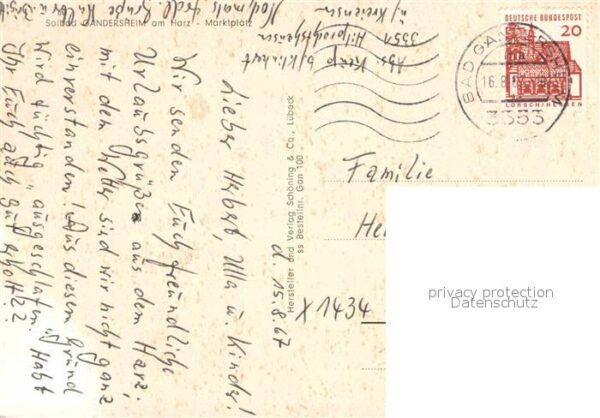 Solbad GANDERSHEIM am Harz - Marktplatz
d. 15.8.67
Lieber Herbert, Ulla u. Kinder!
Wir senden Euch freundliche
Urlaubsgrüße aus dem Harz;
mit dem Wetter sind wir nicht ganz
einverstanden! Aus diesem Grund
wird tüchtig „ausgeschlafen". Habt
Ihr Euch auch gut erholt??
Nochmals recht
Abs. b/
3351
ü/ Kreiensen
Hersteller und Verlag Schöning & Co., Lübeck
ss Bestellnr. Gan 100
DEUTSCHE BUNDESPOST
20
LORSCH/HESSEN
BAD GANDERSHEIM
16.8.
3353
Familie
He
X 1434
privacy protection
Datenschutz